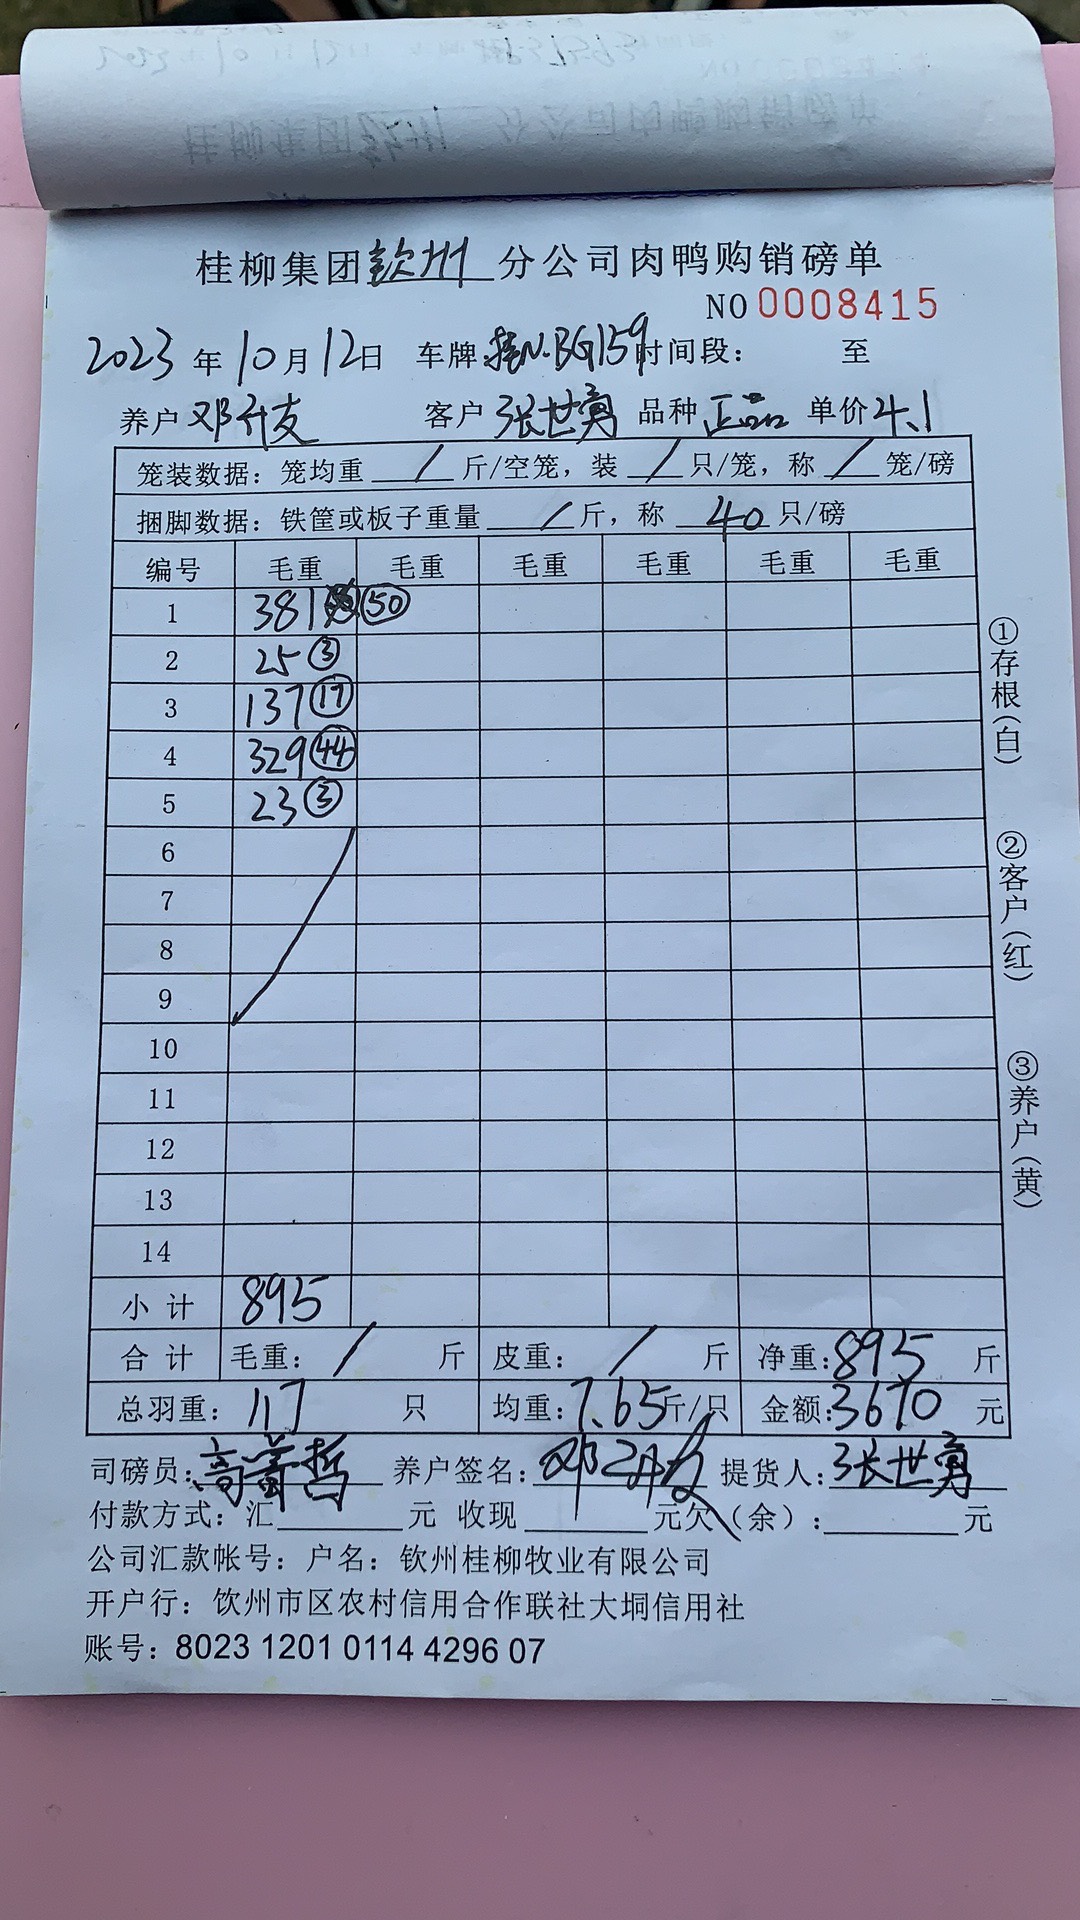 桂柳集团钦州分公司肉鸭购销磅单
NO 0008415
2023年10月12日 车牌桂N.BG159时间段： 至
养户邓升支 客户张世勇 品种正品 单价4.1
笼装数据：笼均重 / 斤/空笼，装 / 只/笼，称 / 笼/磅
捆脚数据：铁筐或板子重量 / 斤，称 40 只/磅
编号 毛重 毛重 毛重 毛重 毛重 毛重
1 381 50
2 25 ③
3 137 ⑰
4 329 ㊹
5 23 ③
6
7
8
9
10
11
12
13
14
小计 895
合计 毛重： / 斤 皮重： / 斤 净重：895 斤
总羽重：117 只 均重：7.65斤/只 金额：3670 元
司磅员： 养户签名： 提货人：张世勇
付款方式：汇 元 收现 元欠（余）： 元
公司汇款帐号：户名：钦州桂柳牧业有限公司
开户行：钦州市区农村信用合作联社大垌信用社
账号：8023 1201 0114 4296 07
①存根（白）
②客户（红）
③养户（黄）